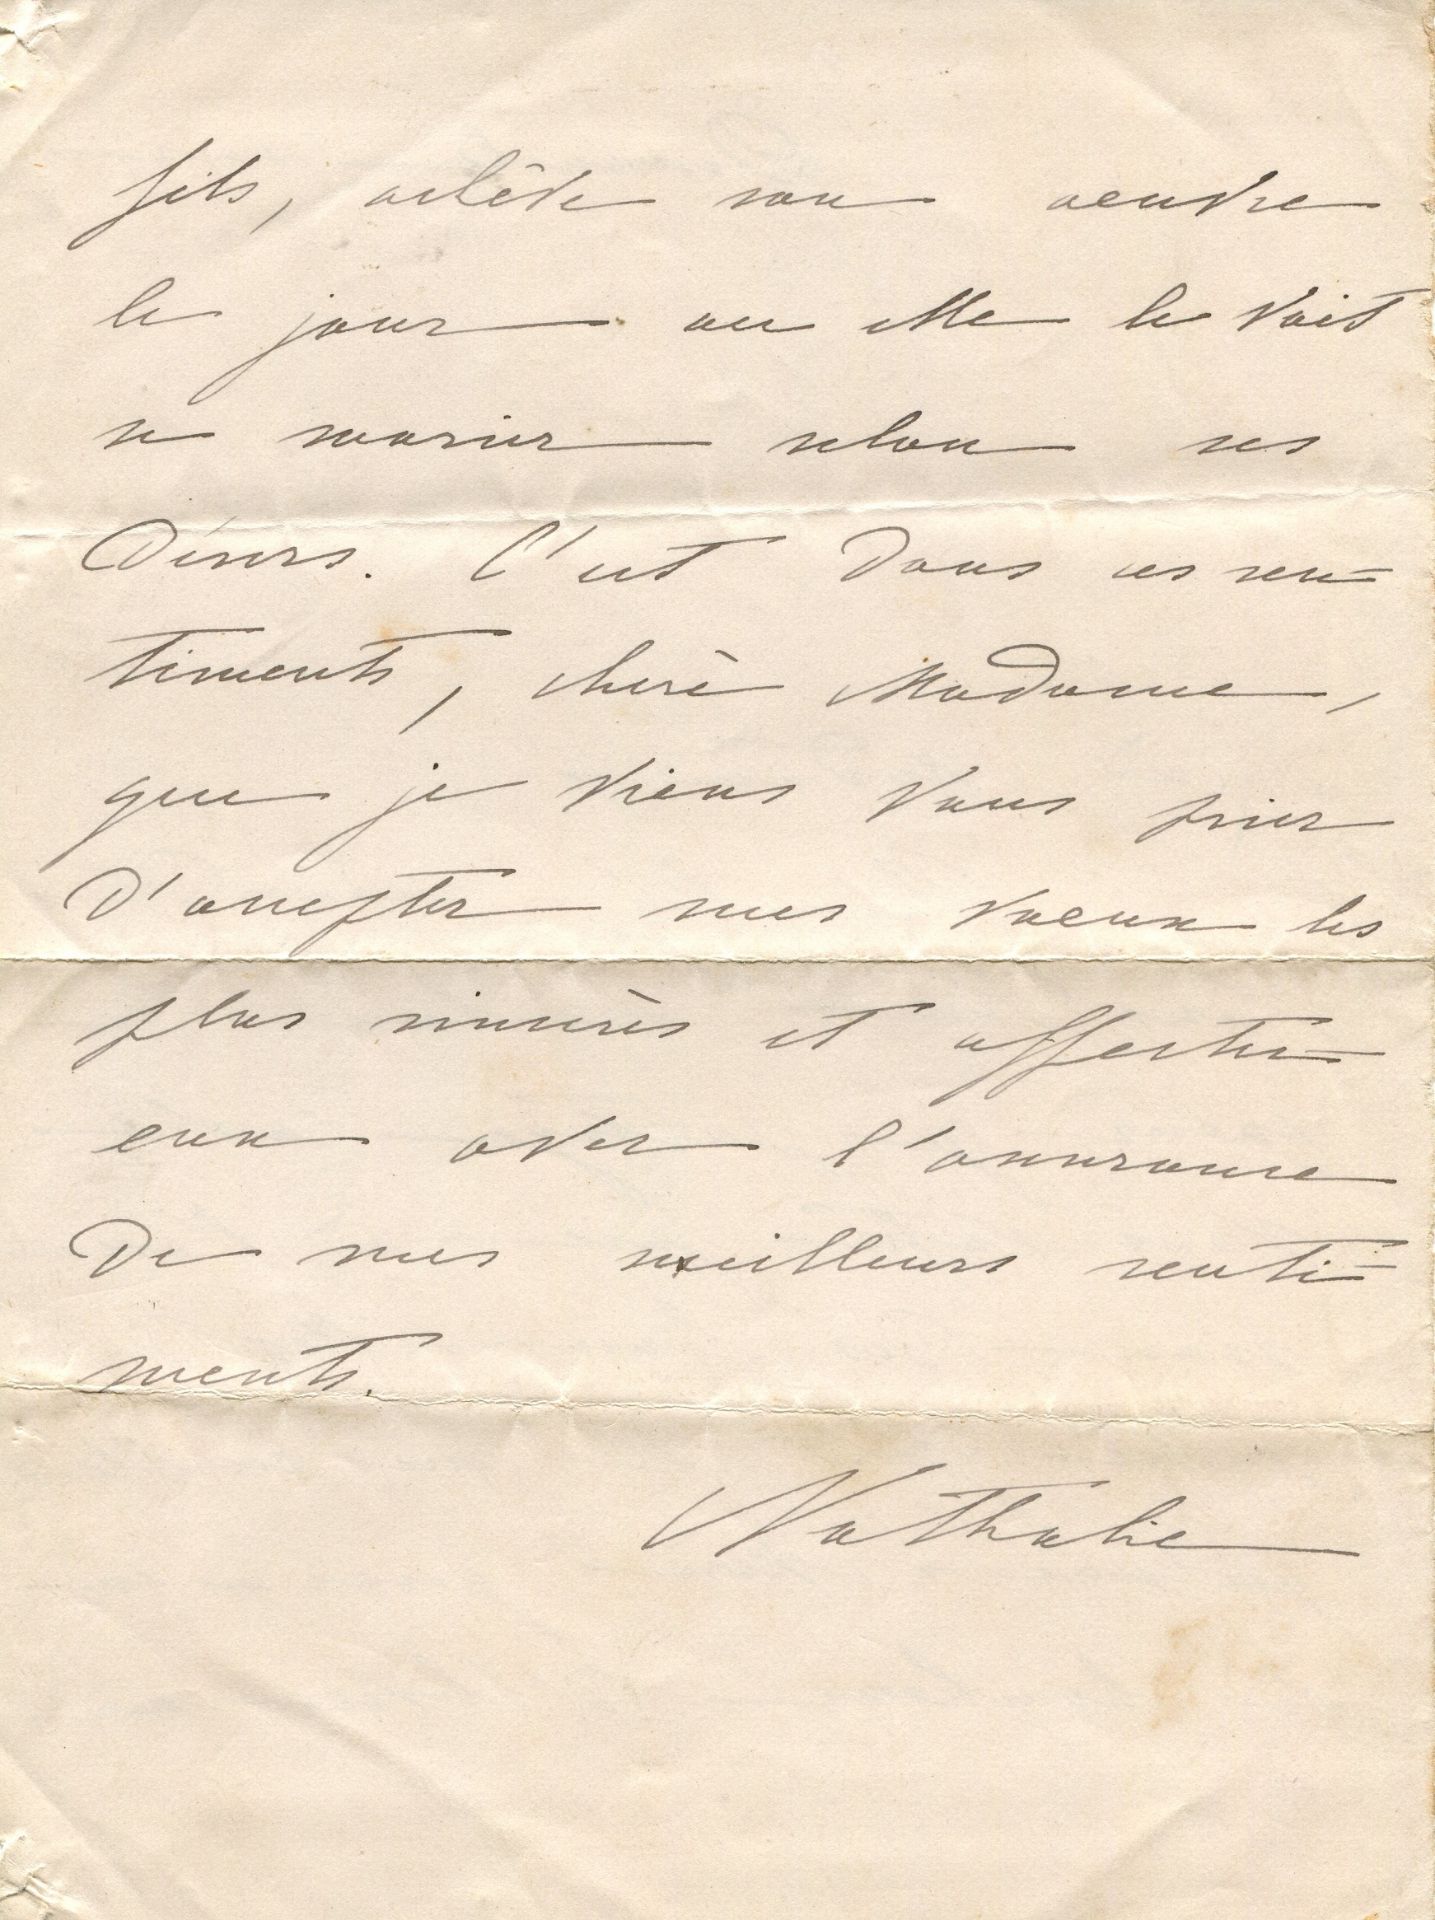 fils, achève son oeuvre
le jour ou elle le voit
se marier selon ses
désirs. C'est dans ces sen=
timents, chère Madame,
que je viens vous prier
d'accepter mes voeux les
plus sincères et affectu=
eux avec l'assurance
de mes meilleurs senti=
ments.
Nathalie